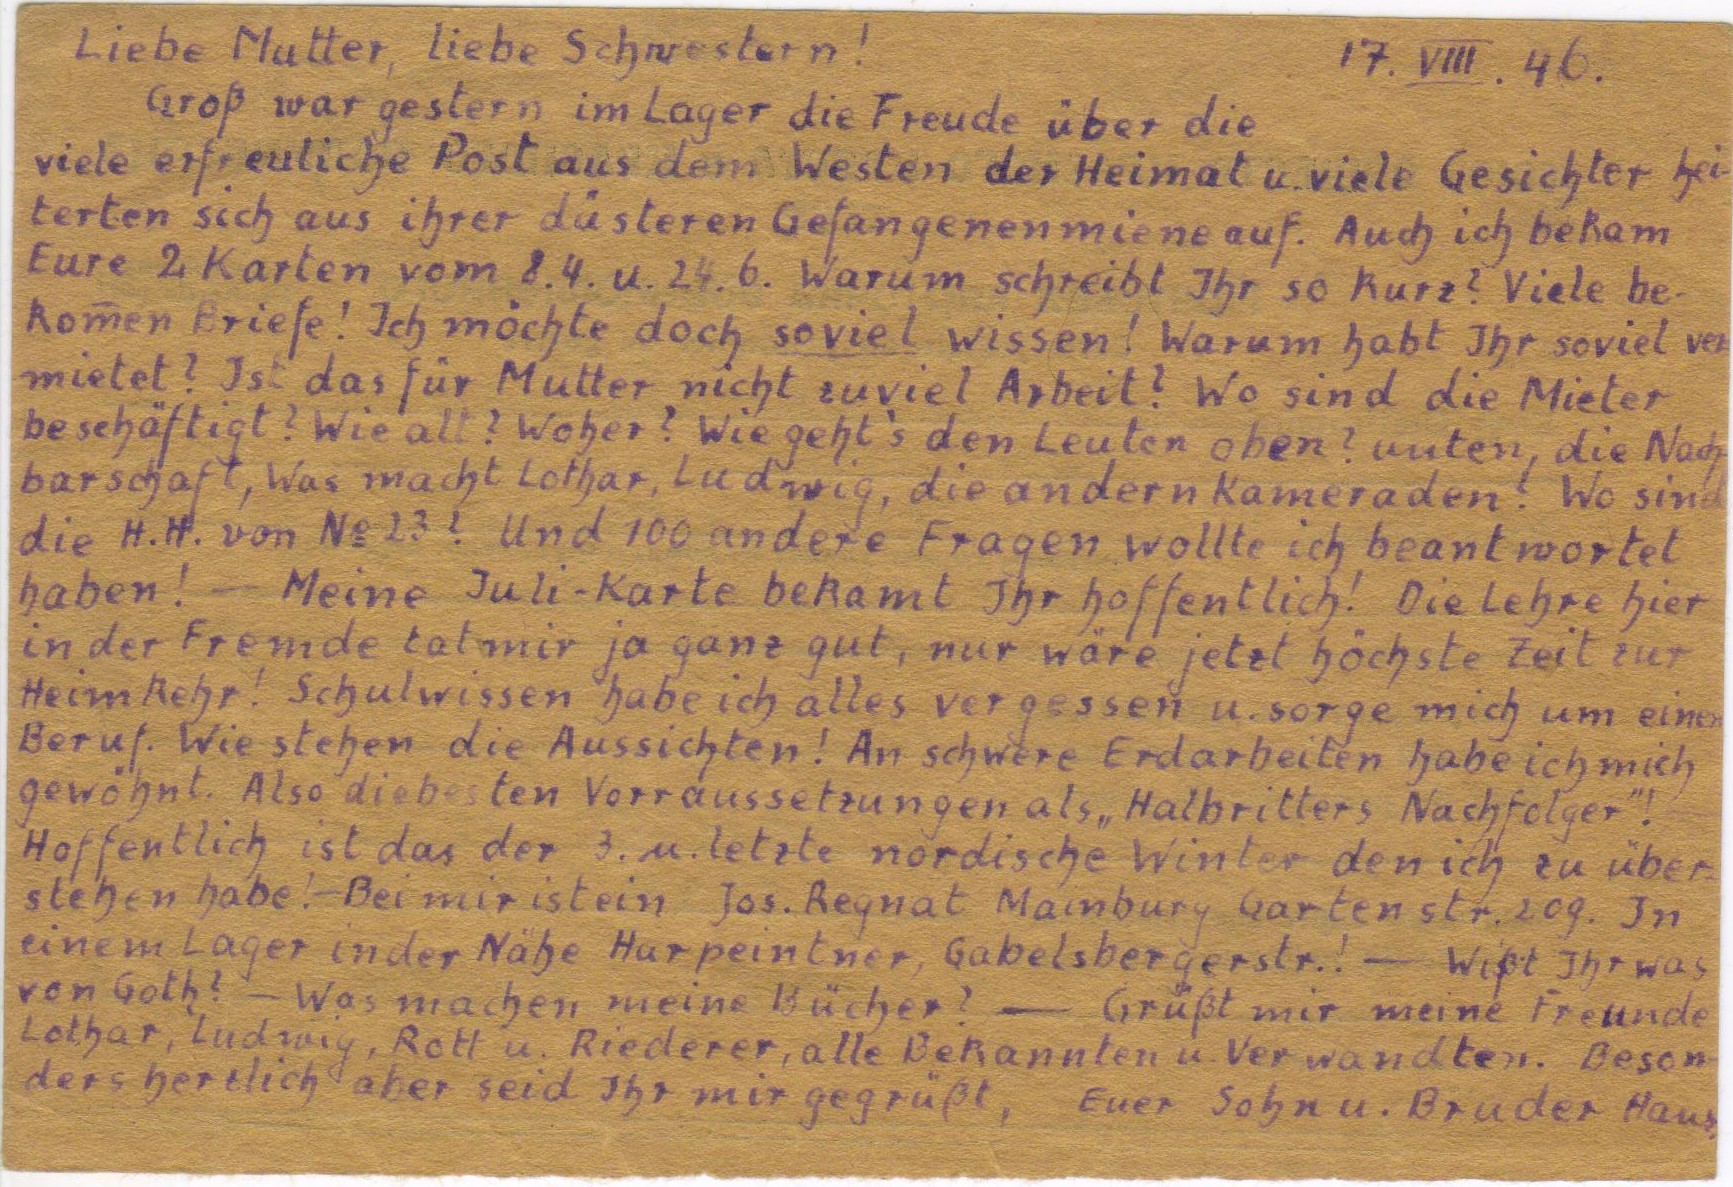 Liebe Mutter, liebe Schwestern! 17. VIII. 46.
Groß war gestern im Lager die Freude über die
viele erfreuliche Post aus dem Westen der Heimat u. viele Gesichter hei-
terten sich aus ihrer düsteren Gefangenenmiene auf. Auch ich bekam
Eure 2 Karten vom 8.4. u. 24.6. Warum schreibt Ihr so kurz? Viele be-
kom̅en Briefe! Ich möchte doch soviel wissen! Warum habt Ihr soviel ver
mietet? Ist das für Mutter nicht zuviel Arbeit? Wo sind die Mieter
beschäftigt? Wie alt? Woher? Wie geht's den Leuten oben? unten, die Nach
barschaft, Was macht Lothar, Ludwig, die andern Kameraden? Wo sind
die H.H. von № 23? Und 100 andere Fragen wollte ich beantwortet
haben! — Meine Juli-Karte bekamt Ihr hoffentlich! Die Lehre hier
in der Fremde tat mir ja ganz gut, nur wäre jetzt höchste Zeit zur
Heimkehr! Schulwissen habe ich alles vergessen u. sorge mich um einen
Beruf. Wie stehen die Aussichten! An schwere Erdarbeiten habe ich mich
gewöhnt. Also die besten Vorraussetzungen als „Halbritters Nachfolger"!
Hoffentlich ist das der 3. u. letzte nordische Winter den ich zu über-
stehen habe! — Bei mir ist ein Jos. Regnat Mainburg Gartenstr. 209. In
einem Lager in der Nähe Harpeintner, Gabelsbergerstr.! — Wißt Ihr was
von Goth? — Was machen meine Bücher? — Grüßt mir meine Freunde
Lothar, Ludwig, Rott u. Riederer, alle Bekannten u. Verwandten. Beson-
ders herzlich aber seid Ihr mir gegrüßt, Euer Sohn u. Bruder Hans.